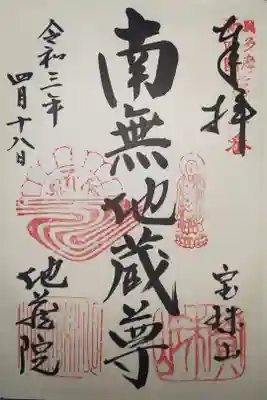 奉拝
宝珠山
南無地蔵尊
令和三年
四月十八日
地蔵院